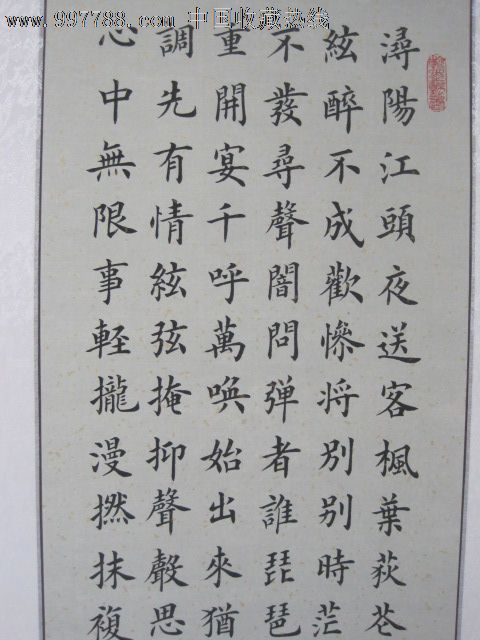 www.997788.com 中国收藏热线
潯陽江頭夜送客楓葉荻花
絃醉不成歡慘将別別時茫
不發尋聲闇問弹者誰琵琶
重開宴千呼萬喚始出來猶
調先有情絃弦掩抑聲聲思
心中無限事軽攏漫撚抹複